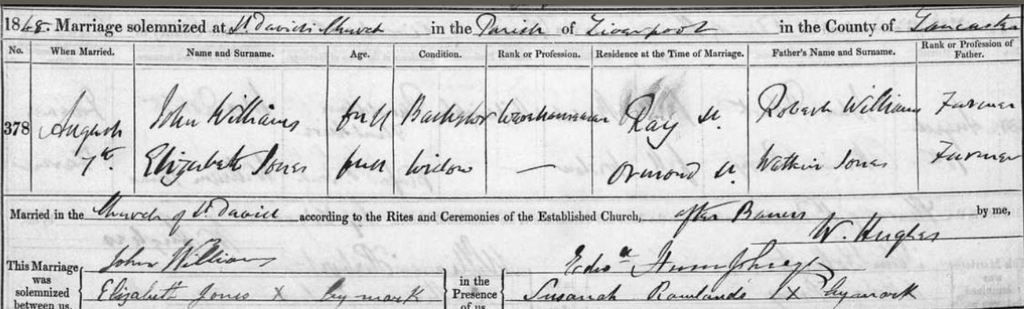 1848. Marriage solemnized at St. Davids Church in the Parish of Liverpool in the County of Lancaster
No. When Married. Name and Surname. Age. Condition. Rank or Profession. Residence at the Time of Marriage. Father's Name and Surname. Rank or Profession of Father.
378 August 7th John Williams full Bachelor Warehouseman Ray St. Robert Williams Farmer
Elizabeth Jones full Widow — Ormond St. Watkin Jones Farmer
Married in the Church of St. David according to the Rites and Ceremonies of the Established Church, after Banns by me,
W. Hughes
This Marriage was solemnized between us, John Williams in the Presence of us, Edwd Humphreys
Elizabeth Jones X by mark Susanah Rowlands X by mark